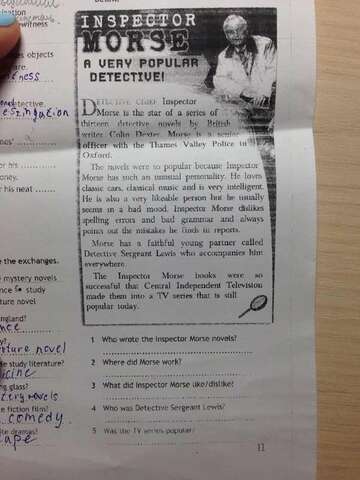 INSPECTOR
MORSE
A VERY POPULAR
DETECTIVE!
DETECTIVE CHIEF Inspector
Morse is the star of a series of
thirteen detective novels by British
writer Colin Dexter. Morse is a senior
officer with the Thames Valley Police in
Oxford.
The novels were so popular because Inspector
Morse has such an unusual personality. He loves
classic cars, classical music and is very intelligent.
He is also a very likeable person but he usually
seems in a bad mood. Inspector Morse dislikes
spelling errors and bad grammar and always
points out the mistakes he finds in reports.
Morse has a faithful young partner called
Detective Sergeant Lewis who accompanies him
everywhere.
The Inspector Morse books were so
successful that Central Independent Television
made them into a TV series that is still
popular today.
1 Who wrote the Inspector Morse novels?
2 Where did Morse work?
3 What did Inspector Morse like/dislike?
4 Who was Detective Sergeant Lewis?
5 Was the TV series popular?
11
eyewitness
objects
detective.
for his
money.
his neat
the exchanges.
mystery novels
study
novel
novel
study literature?
glass?
fiction film?
comedy
dramas?